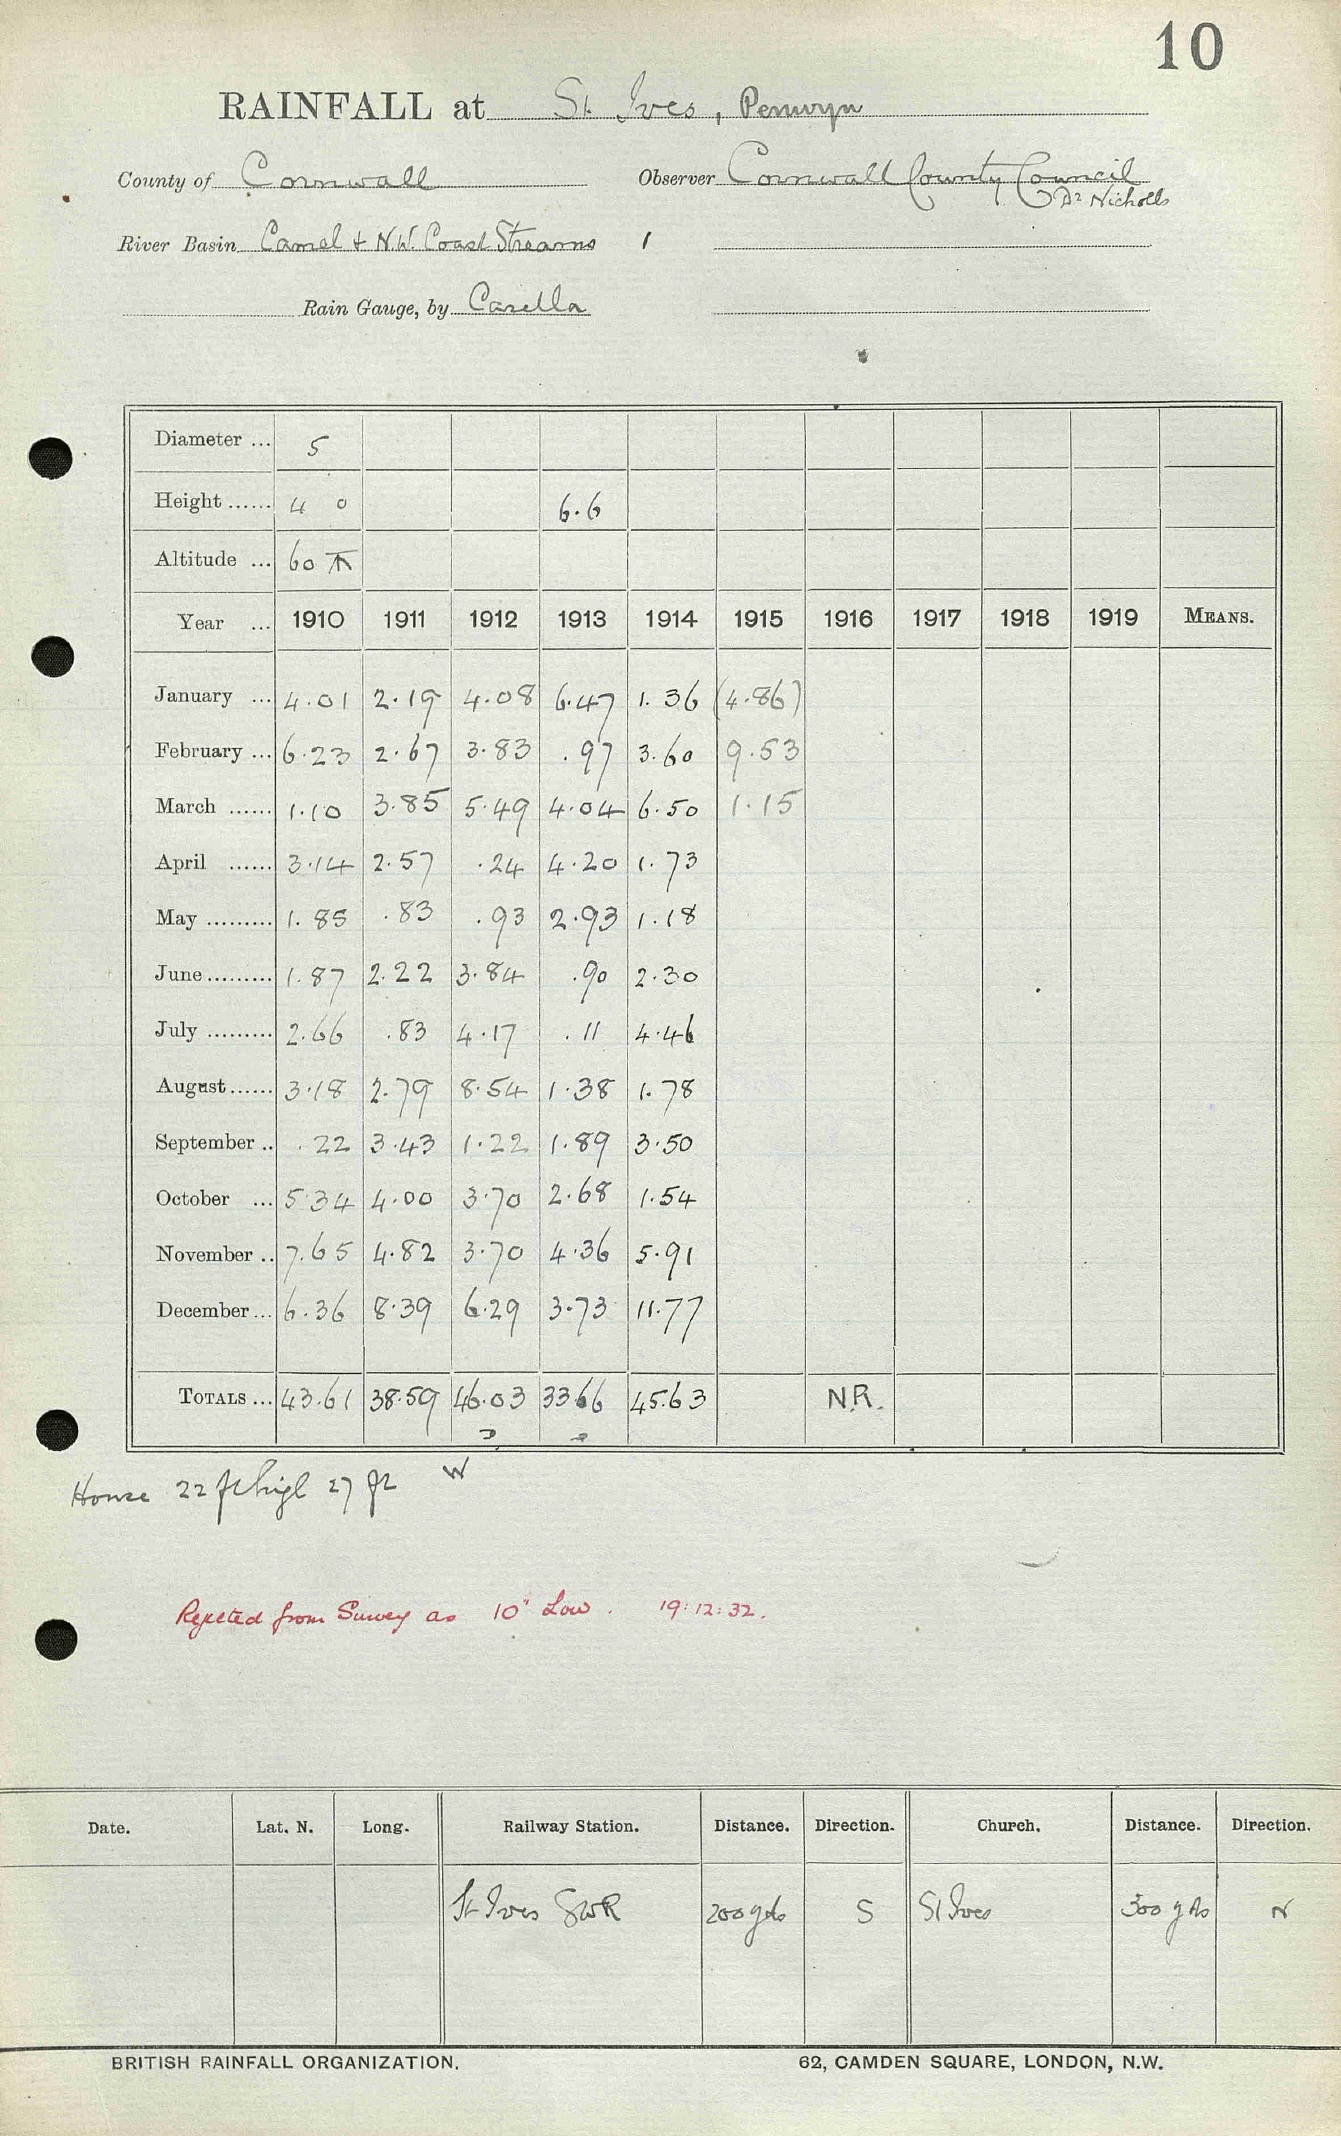 10
RAINFALL at St. Ives, Penwyn
County of Cornwall Observer Cornwall County Council
Dr Nicholls
River Basin Camel & N.W. Coast Streams 1
Rain Gauge, by Casella
Diameter ... 5
Height ...... 4 0 6.6
Altitude ... 60
Year ... 1910 1911 1912 1913 1914 1915 1916 1917 1918 1919 MEANS.
January ... 4.01 2.19 4.08 6.47 1.36 (4.86)
February ... 6.23 2.67 3.83 .97 3.60 9.53
March ...... 1.10 3.85 5.49 4.04 6.50 1.15
April ...... 3.14 2.57 .24 4.20 1.73
May ......... 1.85 .83 .93 2.93 1.18
June ......... 1.87 2.22 3.84 .90 2.30
July ......... 2.66 .83 4.17 .11 4.46
August ...... 3.18 2.79 8.54 1.38 1.78
September .. .22 3.43 1.22 1.89 3.50
October ... 5.34 4.00 3.70 2.68 1.54
November .. 7.65 4.82 3.70 4.36 5.91
December ... 6.36 8.39 6.29 3.73 11.77
TOTALS ... 43.61 38.59 46.03 33.66 45.63 N.R.
House 22 ft high 27 ft W
Rejected from Survey as 10" Low. 19:12:32.
Date. Lat. N. Long. Railway Station. Distance. Direction. Church. Distance. Direction.
St Ives GWR 200 yds S St Ives 300 yds N
BRITISH RAINFALL ORGANIZATION. 62, CAMDEN SQUARE, LONDON, N.W.